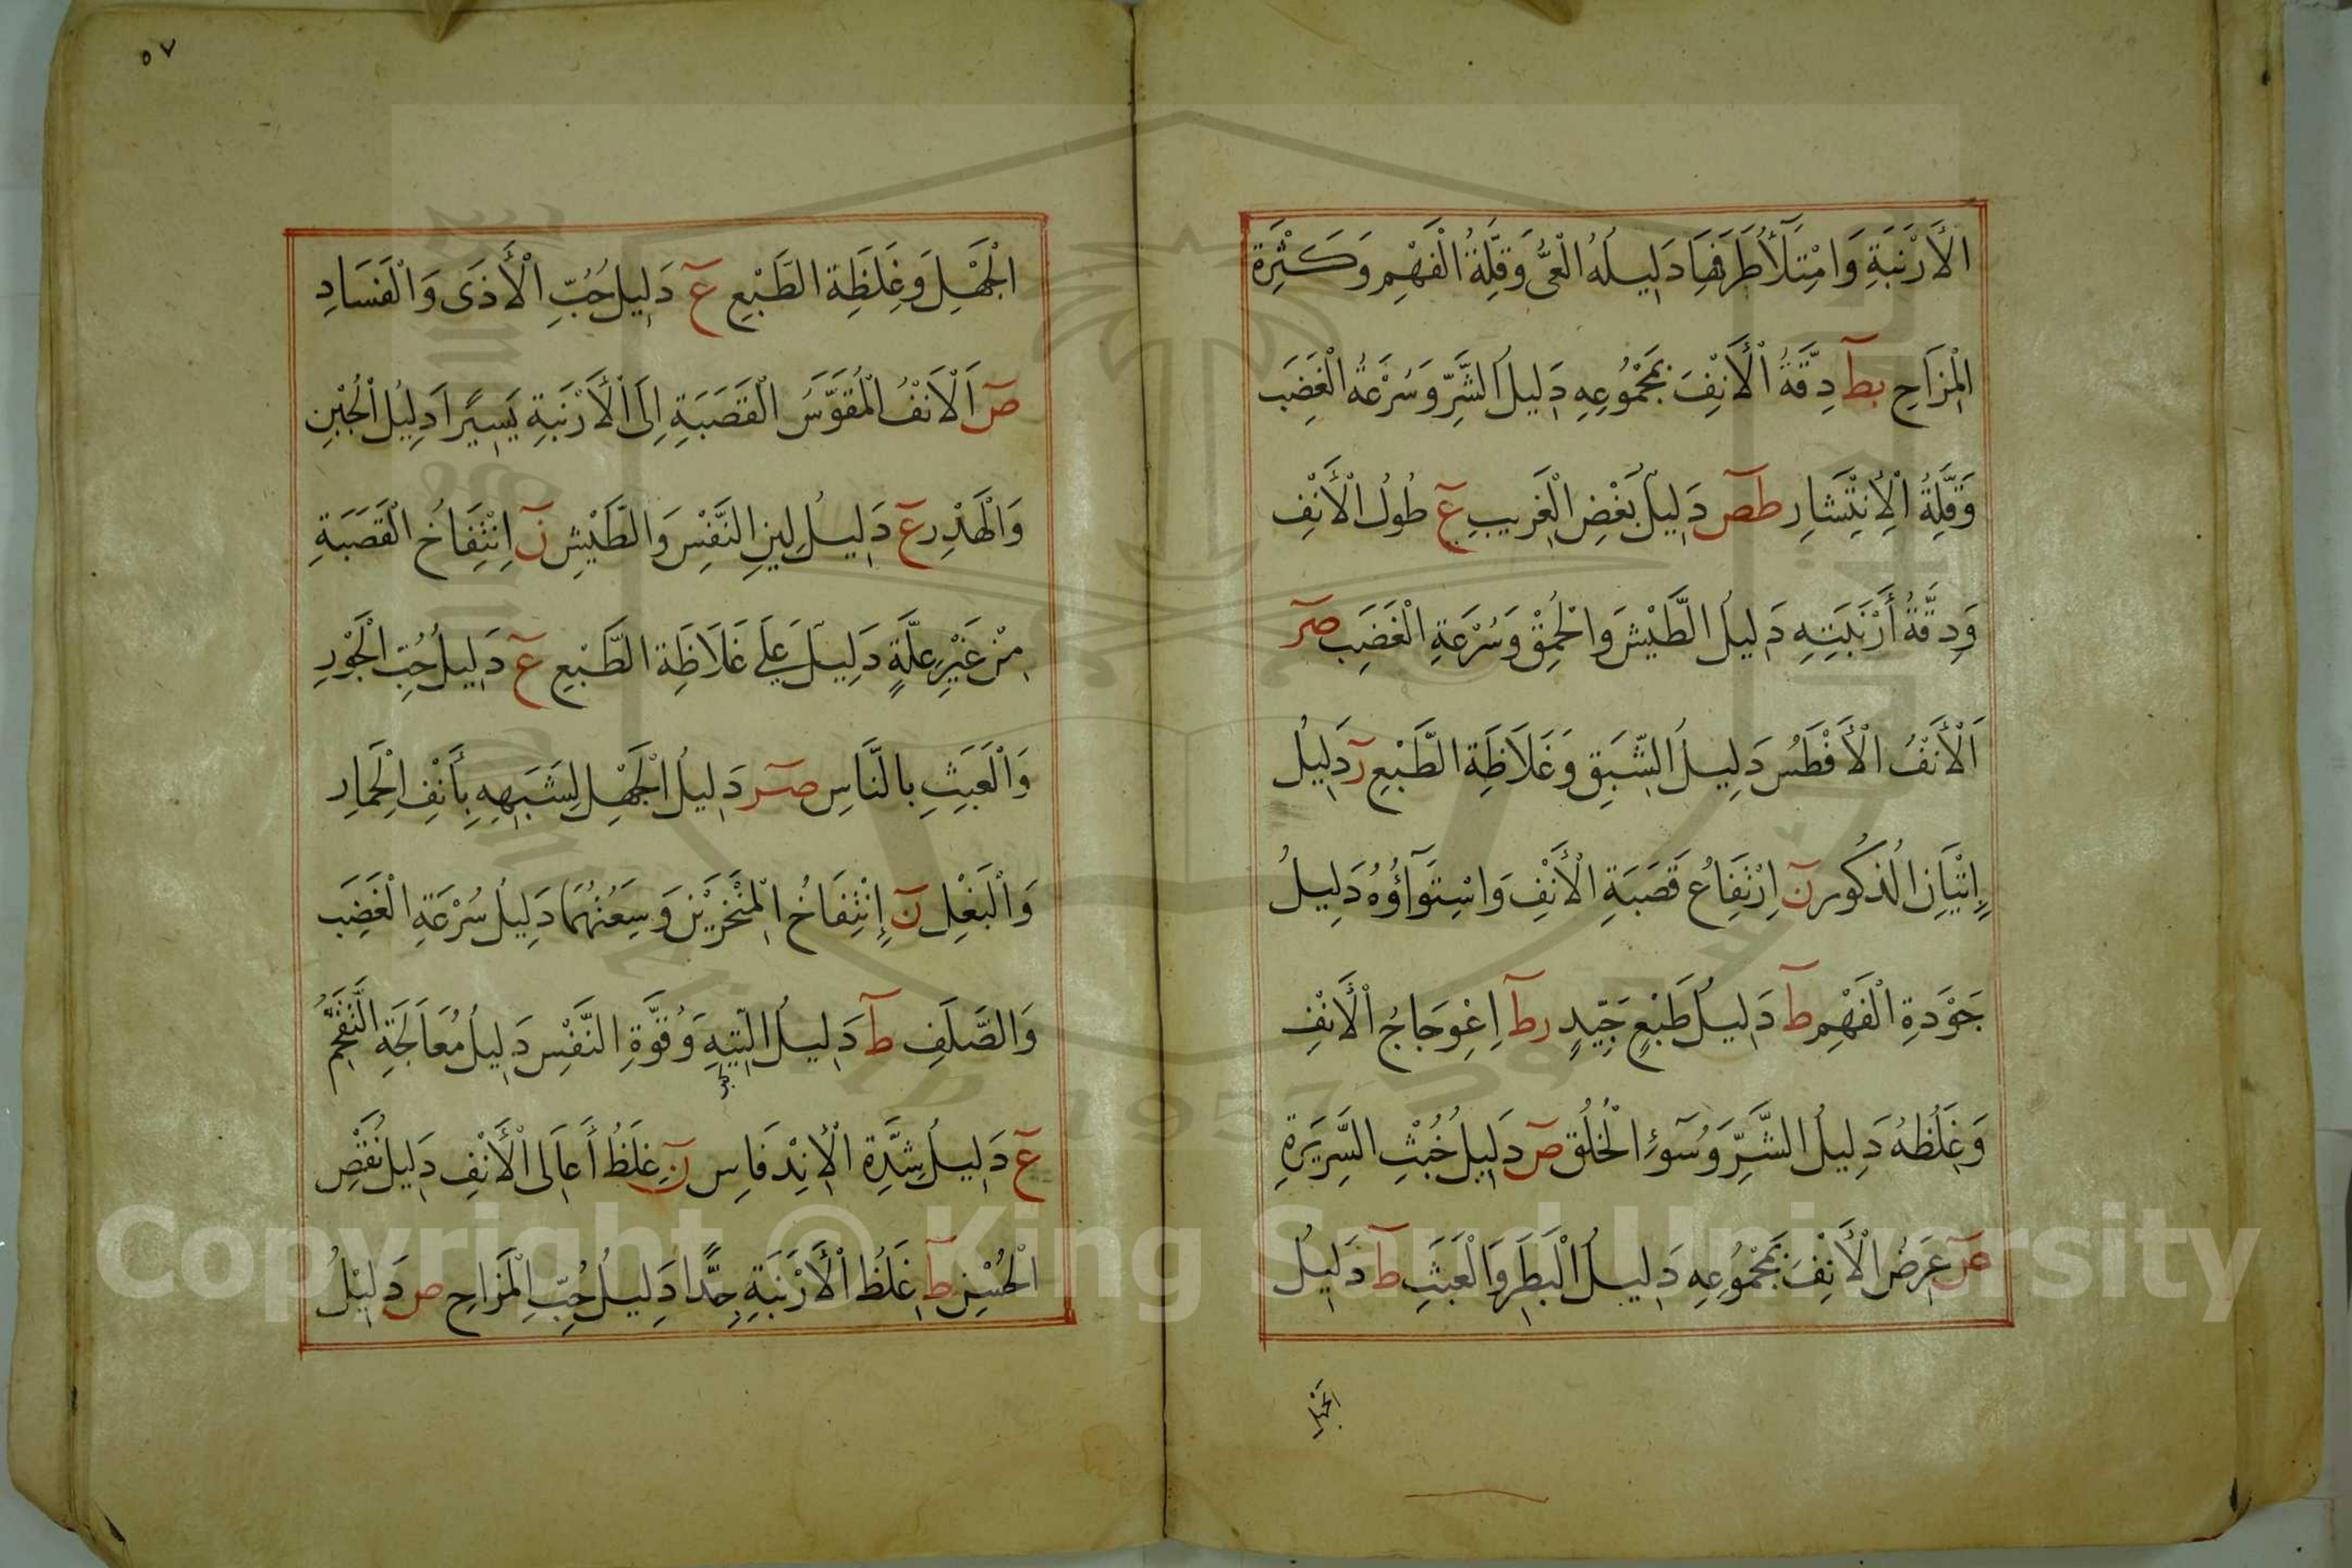 الْأَرْنَبَةِ وَامْتِلَأُ طَرَفِهَا دَلِيلُهُ الْعِىُّ وَقِلَّةُ الْفَهْمِ وَكَثْرَةِ
الْمِزَاحِ بط دِقَّةُ الْأَنْفِ بِمَجْمُوعِهِ دَلِيلُ الشَّرِّ وَسُرْعَةُ الْغَضَبِ
وَقِلَّةُ الْاِنْتِشَارِ طص دَلِيلُ بُغْضِ الْغَرِيبِ ع طُولُ الْأَنْفِ
وَدِقَّةُ أَرْنَبَتِهِ دَلِيلُ الطَّيْشِ وَالْحُمْقِ وَسُرْعَةِ الْغَضَبِ صر
اَلْأَنْفُ الْأَفْطَسُ دَلِيلُ الشَّبَقِ وَغَلَاظَةِ الطَّبْعِ ر دَلِيلُ
إِتْيَانِ الذُكُورِ ن اِرْتِفَاعُ قَصَبَةِ الْأَنْفِ وَاسْتِوَآؤُهُ دَلِيلُ
جَوْدَةِ الْفَهْمِ ط دَلِيلُ طَبْعٍ جَيِّدٍ رط اِعْوِجَاجُ الْأَنْفِ
وَغِلَظُهُ دَلِيلُ الشَّرِّ وَسُوٓءِ الْخُلُقِ ص دَلِيلُ خُبْثِ السَّرِيرَةِ
عر عَرْضُ الْأَنْفِ بِمَجْمُوعِهِ دَلِيلُ الْبَطَرِ وَالْعَبَثِ ط دَلِيلُ
الْجَهْلِ وَغِلَظَةِ الطَّبْعِ ع دَلِيلُ حُبِّ الْأَذَى وَالْفَسَادِ
صر اَلْاَنْفُ الْمُقَوَّسُ الْقَصَبَةِ اِلَى الْأَرْنَبَةِ يَسِيرًا دَلِيلُ الْجُبْنِ
وَالْهَدْرِ ع دَلِيلُ لِينِ النَّفْسِ وَالطَّيْشِ ن اِنْتِفَاخُ الْقَصَبَةِ
مِنْ غَيْرِ عِلَّةٍ دَلِيلٌ عَلَى غَلَاظَةِ الطَّبْعِ ع دَلِيلُ حُبِّ الْجَوْرِ
وَالْعَبَثِ بِالنَّاسِ صر دَلِيلُ الْجَهْلِ لِشَبَهِهِ بِأَنْفِ الْحِمَارِ
وَالْبَغْلِ ن إِنْتِفَاخُ الْمَنْخَرَيْنِ وَسِعَتُهُمَا دَلِيلُ سُرْعَةِ الْغَضَبِ
وَالصَّلَفِ ط دَلِيلُ التِّيهِ وَقُوَّةِ النَّفْسِ دَلِيلُ مُعَاجَلَةِ
ع دَلِيلُ شِدَّةِ الْاِنْدِفَاسِ ن غِلَظُ أَعَالِى الْأَنْفِ دَلِيلُ نَقْصِ
الْحُسْنِ ط غِلَظُ الْأَرْنَبَةِ جِدًّا دَلِيلُ حُبِّ الْمَزَاحِ ص دَلِيلُ
٥٧
Copyright © King Saud University
1957